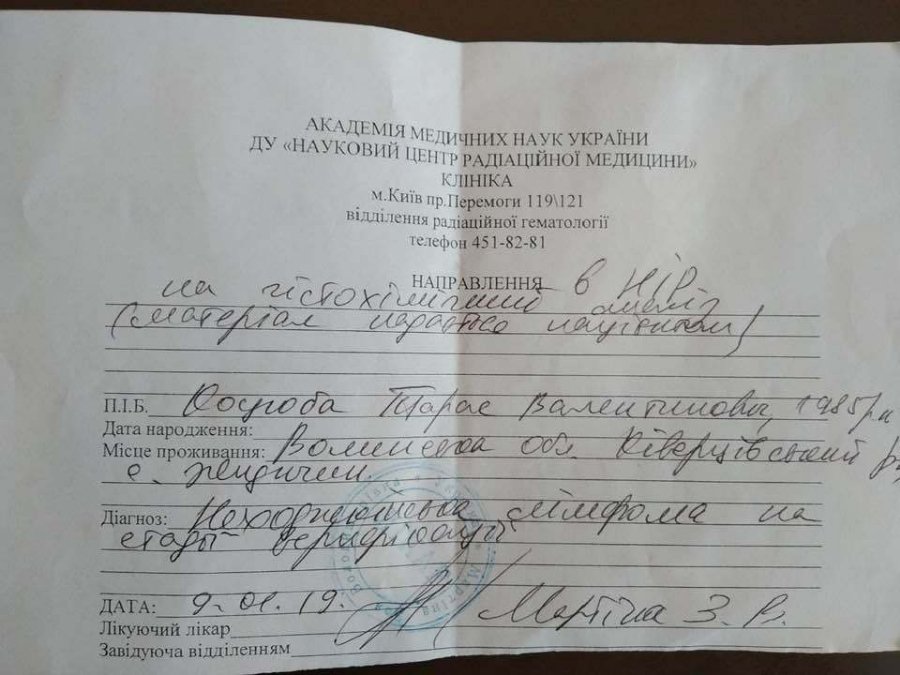 АКАДЕМІЯ МЕДИЧНИХ НАУК УКРАЇНИ
ДУ «НАУКОВИЙ ЦЕНТР РАДІАЦІЙНОЇ МЕДИЦИНИ»
КЛІНІКА
м.Київ пр.Перемоги 119\121
відділення радіаційної гематології
телефон 451-82-81
НАПРАВЛЕННЯ в НІР
на гістохімічний аналіз
(матеріал надається пацієнтом)
П.І.Б. Тарас Валентинович, 1985 рн
Дата народження:
Місце проживання: Волинська обл. Ківерцівський р
с. Жидичин.
Діагноз: Неходжкінська лімфома на
стадії верифікації
ДАТА: 9.01.19. Мартіна З. В.
Лікуючий лікар
Завідуюча відділенням